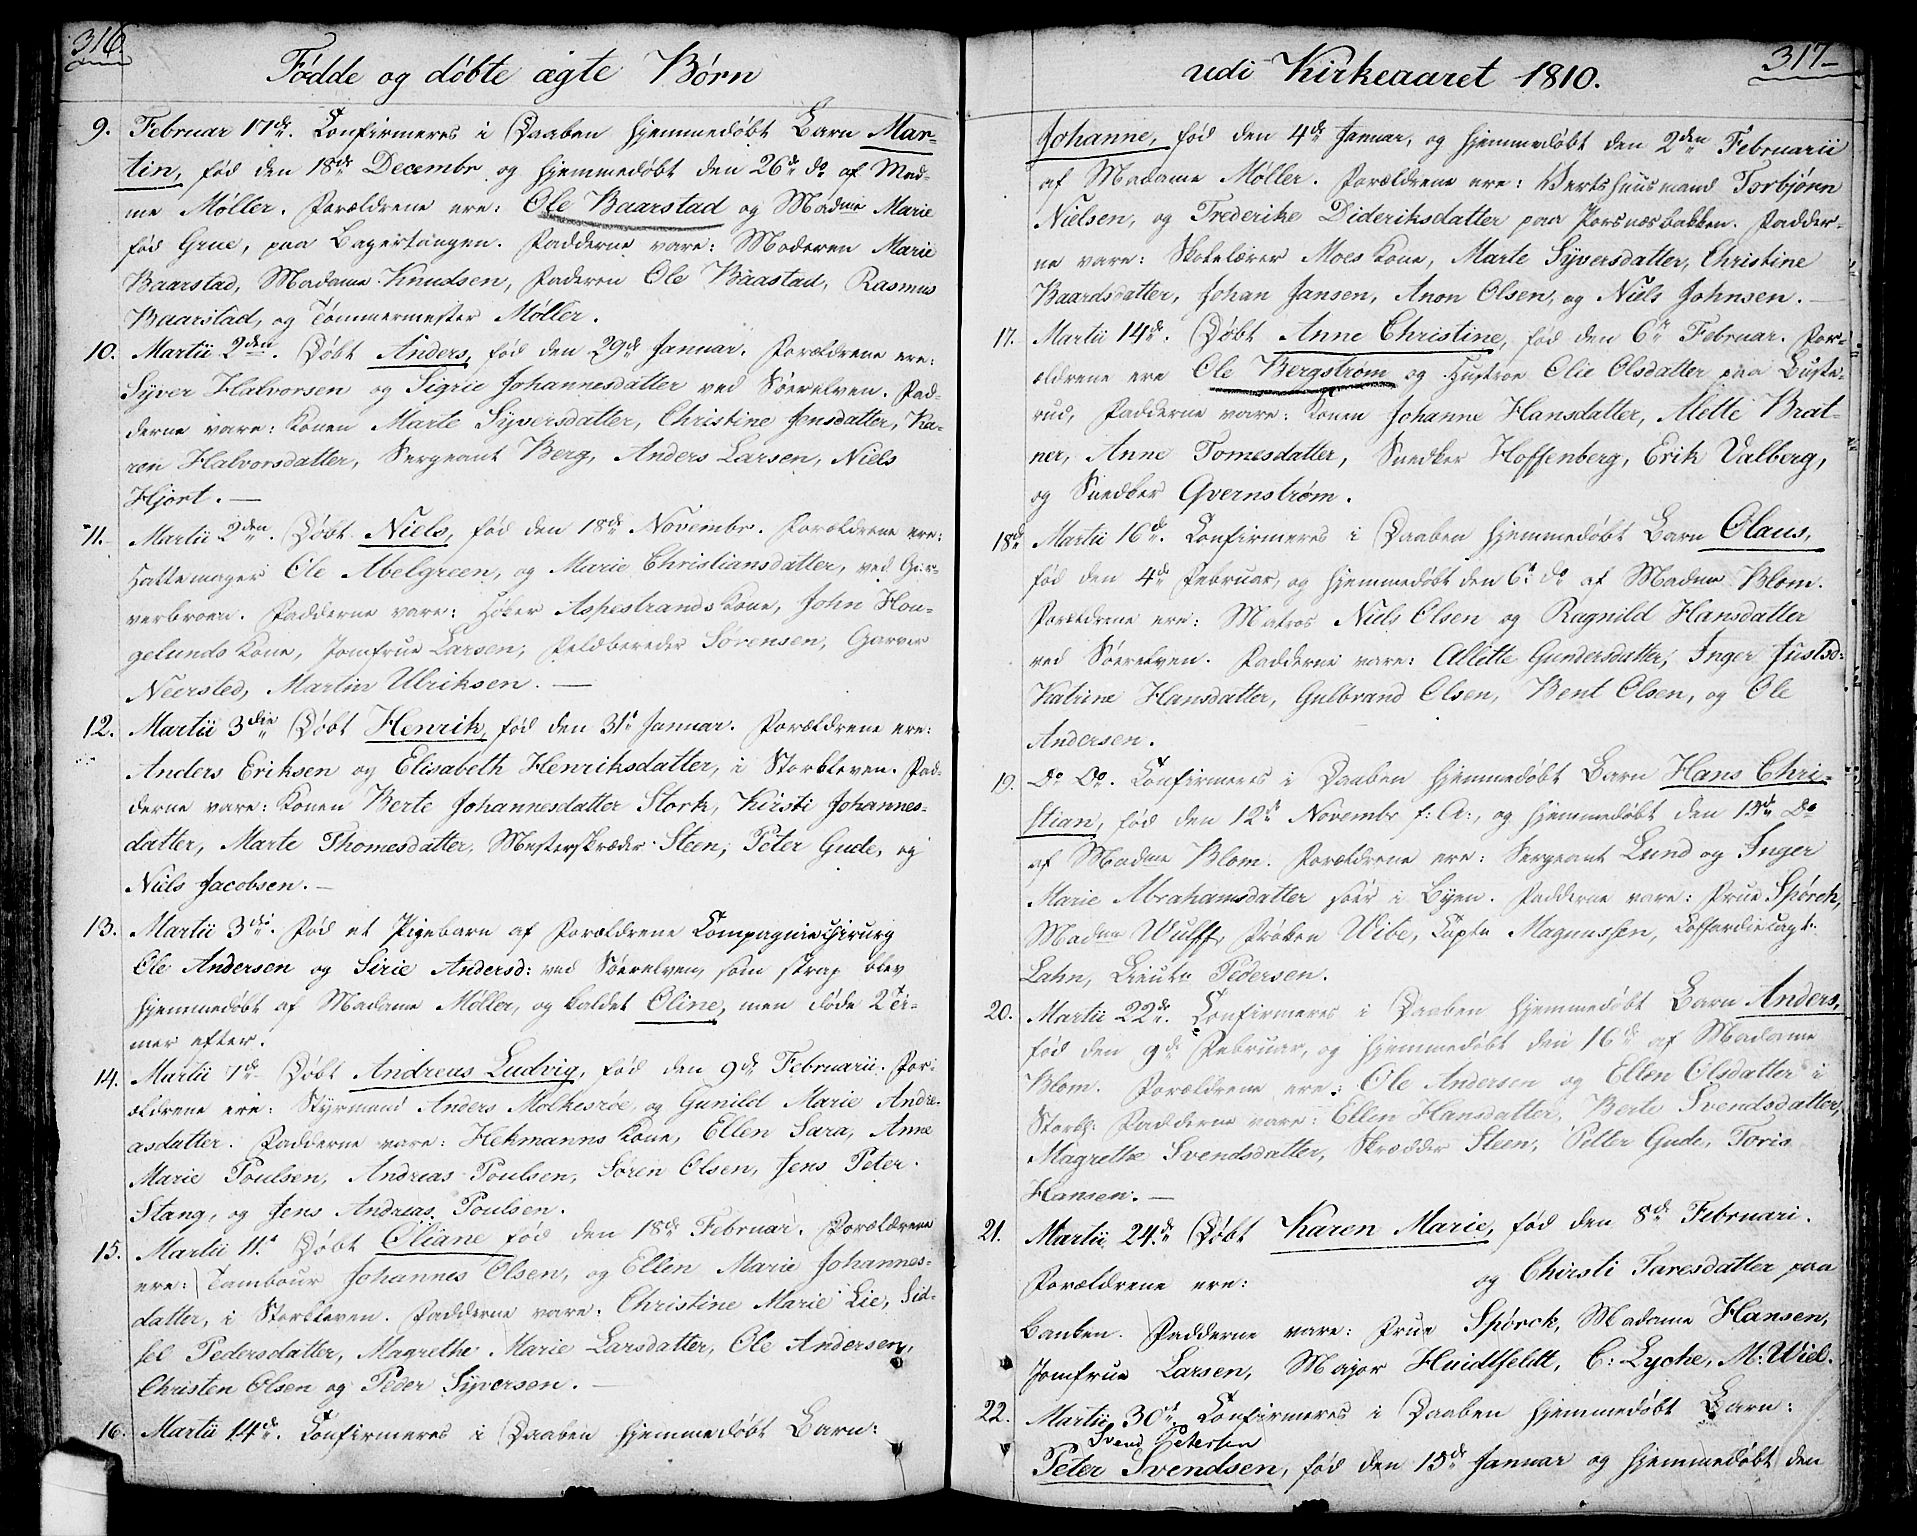 316.
Fødde og døbte ægte Børn
9. Februar 17de. Confirmeres i Daaben hjemmedøbt Barn Mar-
tin, fød den 18de Decembr og hjemmedøbt den 26de do af Mad-
me Møller. Forældrene ere: Ole Baarstad og Madme Marie
fød Grue, paa Bagertangen. Fadderne vare: Moderen Marie
Baarstad, Madame Knudsen, Faderen Ole Baastad, Rasmus
Baarstad, og Tømmermester Møller.
10. Martii 2den. Døbt Anders, fød den 29de Januar. Forældrene ere:
Syver Halvorsen og Sigrie Johannesdatter ved Søerelven. Fad-
derne vare: Konen Marte Syversdatter, Christine Jensdatter, Ka-
ren Halvorsdatter, Sergeant Berg, Anders Larsen, Niels
Hjort. —
11. Martii 2den. Døbt Niels, fød den 18de Novembr. Forældrene ere:
Hattemager Ole Abelgreen, og Marie Christiansdatter, ved Gar-
verbroen. Fadderne vare: Høker Aspestrands Kone, John Hou-
gelunds Kone, Jomfrue Larsen, Feldbereder Sørensen, Garver
Neersted, Martin Ulriksen. —
12. Martii 3die Døbt Henrik, fød den 31te Januar. Forældrene ere:
Anders Eriksen og Elisabeth Henriksdatter, i Storkleven. Fad-
derne vare: Konen Berte Johannesdatter Stork, Kirsti Johannes-
datter, Marte Thomesdatter, Mesterskræder Steen, Peter Gude, og
Niels Jacobsen. —
13. Martii 3die. Fød et Pigebarn af Forældrene Compagnie Chirurg
Ole Andersen og Sirie Andersd: ved Søerelven, som strax blev
hjemmedøbt af Madame Møller, og kaldet Oline, men døde 2 Ti-
mer efter.
14. Martii 7de Døbt Andreas Ludvig, fød den 9de Februarii. For-
ældrene ere: Styrmand Anders Molkesrøe, og Gunild Marie Andre-
asdatter. Fadderne vare: Hekmanns Kone, Ellen Sara, Anne
Marie Poulsen, Andreas Poulsen, Søren Olsen, Jens Peter
Stang, og Jens Andreas Poulsen.
15. Martii 11te Døbt Oliane fød den 18de Februar. Forældrene
ere: Tambour Johannes Olsen, og Ellen Marie Johannes-
datter, i Storkleven. Fadderne vare: Christine Marie Lie, Sid-
sel Pedersdatter, Magrethe Marie Larsdatter, Ole Andersen,
Christen Olsen og Peder Syversen. —
16. Martii 14de. Confirmeres i Daaben hjemmedøbt Barn:
317
udi Kirkeaaret 1810.
Johanne, fød den 4de Januar, og hjemmedøbt den 2den Februarii
af Madame Møller. Forældrene ere: Vertshuusmand Torbjønn
Nielsen, og Frederike Dideriksdatter paa Porsnæsbakken. Fadder-
ne vare: Skolelærer Moes Kone, Marte Syversdatter, Christine
Baardsdatter, Johan Jansen, Anon Olsen, og Niels Johnsen. —
17. Martii 14de. Døbt Anne Christine, fød den 6te Februar. For-
ældrene ere Ole Bergstrøm og Hustroe Olie Olsdatter paa Buste-
rud, Fadderne vare: Konen Johanne Hansdatter, Alette Brat-
ner, Anne Tomesdatter, Snedker Hoffenberg, Erik Valberg,
og Snedker Qvernstrøm.
18de Martii 16de. Confirmeres i Daaben hjemmedøbt Barn Olaus,
fød den 4de Februar, og hjemmedøbt den 6te do af Madme Blom.
Forældrene ere: Matros Niels Olsen og Ragnild Hansdatter
ved Søerelven. Fadderne vare: Allette Gundersdatter, Inger Justsd:
Katrine Hansdatter, Gulbrand Olsen, Bent Olsen, og Ole
Andersen.
19. Do Do. Confirmeres i Daaben hjemmedøbt Barn Hans Chri-
stian, fød den 12te Novembr f: A:, og hjemmedøbt den 15de Do
af Madme Blom. Forældrene ere: Sergeant Lund og Inger
Marie Abrahamsdatter her i Byen. Fadderne vare: Frue Spørck,
Madme Wulff, Frøken Wibe, Captn Magnussen, Cofferdiecapt:
Lahn, Lieutn Pedersen.
20. Martii 22de. Confirmeres i Daaben hjemmedøbt Barn Anders,
fød den 9de Februar, og hjemmedøbt den 16de af Madame
Blom. Forældrene ere: Ole Andersen og Ellen Olsdatter i
Stork: Fadderne vare: Ellen Hansdatter, Berte Svendsdatter,
Magrethe Svendsdatter, Skrædder Steen, Petter Gude, Toris
Hansen. —
21. Martii 24de Døbt Karen Marie, fød den 8de Februari.
Forældrene ere: og Chirsti Taresdatter paa
Banken. Fadderne vare: Frue Spørck, Madame Hansen,
Jomfrue Larsen, Major Huidtfeldt, C: Lyche, M: Wiel.
22. Martii 30te Confirmeres i Daaben hjemmedøbt Barn:
Svend Petersen
Peter Svendsen, fød den 15de Januar og hjemmedøbt den